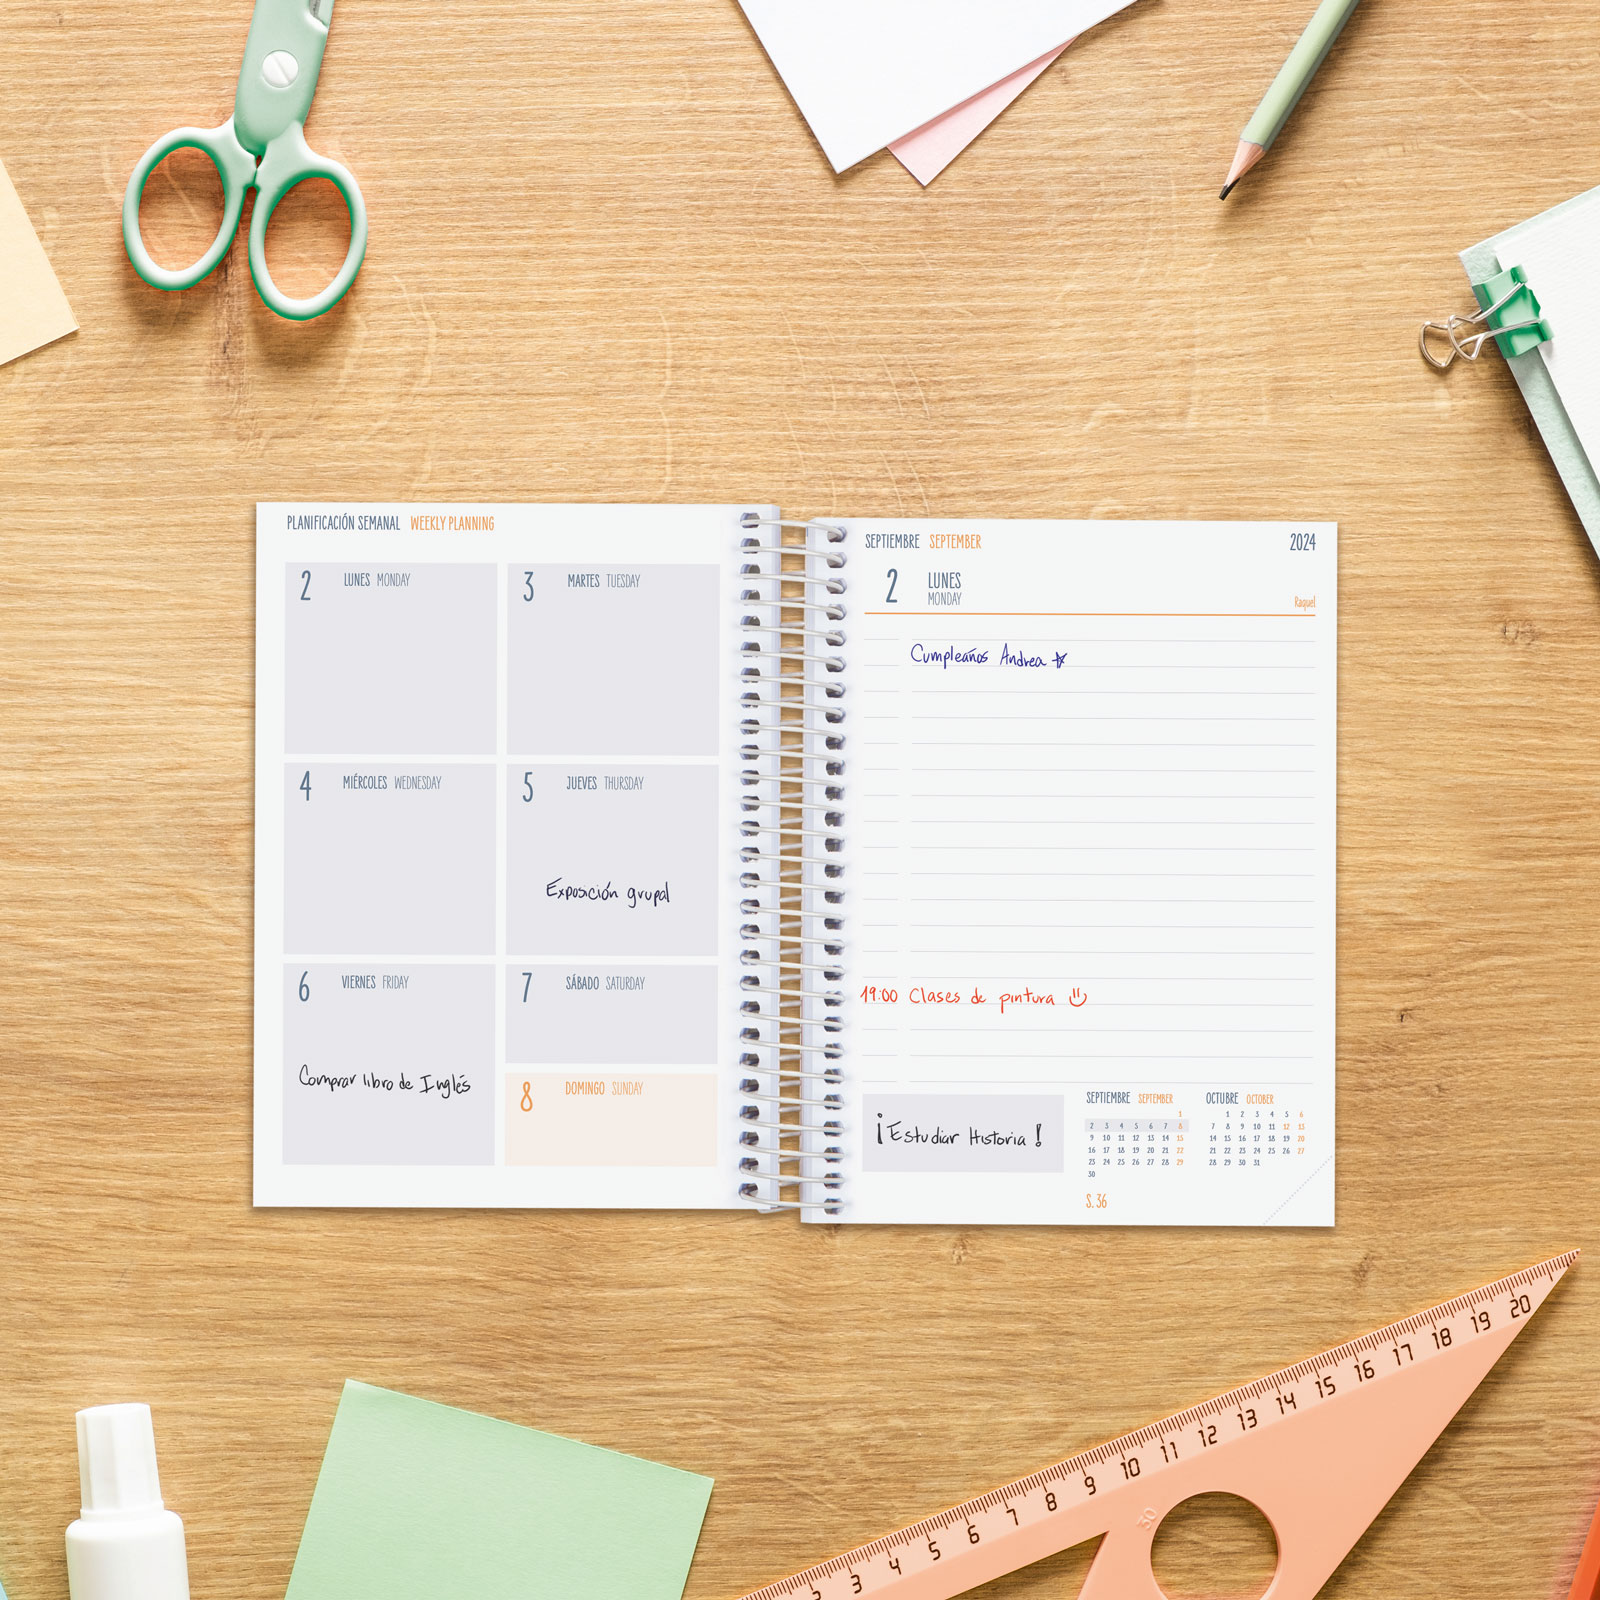 PLANIFICACIÓN SEMANAL WEEKLY PLANNING
2 LUNES MONDAY
3 MARTES TUESDAY
4 MIÉRCOLES WEDNESDAY
5 JUEVES THURSDAY
Exposición grupal
6 VIERNES FRIDAY
Comprar libro de Inglés
7 SÁBADO SATURDAY
8 DOMINGO SUNDAY
SEPTIEMBRE SEPTEMBER 2024
2 LUNES
MONDAY
Raquel
Cumpleaños Andrea
19:00 Clases de pintura
¡Estudiar Historia!
SEPTIEMBRE SEPTEMBER
1
2 3 4 5 6 7 8
9 10 11 12 13 14 15
16 17 18 19 20 21 22
23 24 25 26 27 28 29
30
S. 36
OCTUBRE OCTOBER
1 2 3 4 5 6
7 8 9 10 11 12 13
14 15 16 17 18 19 20
21 22 23 24 25 26 27
28 29 30 31
2 3 4 5 6 7 8 9 10 11 12 13 14 15 16 17 18 19 20
30